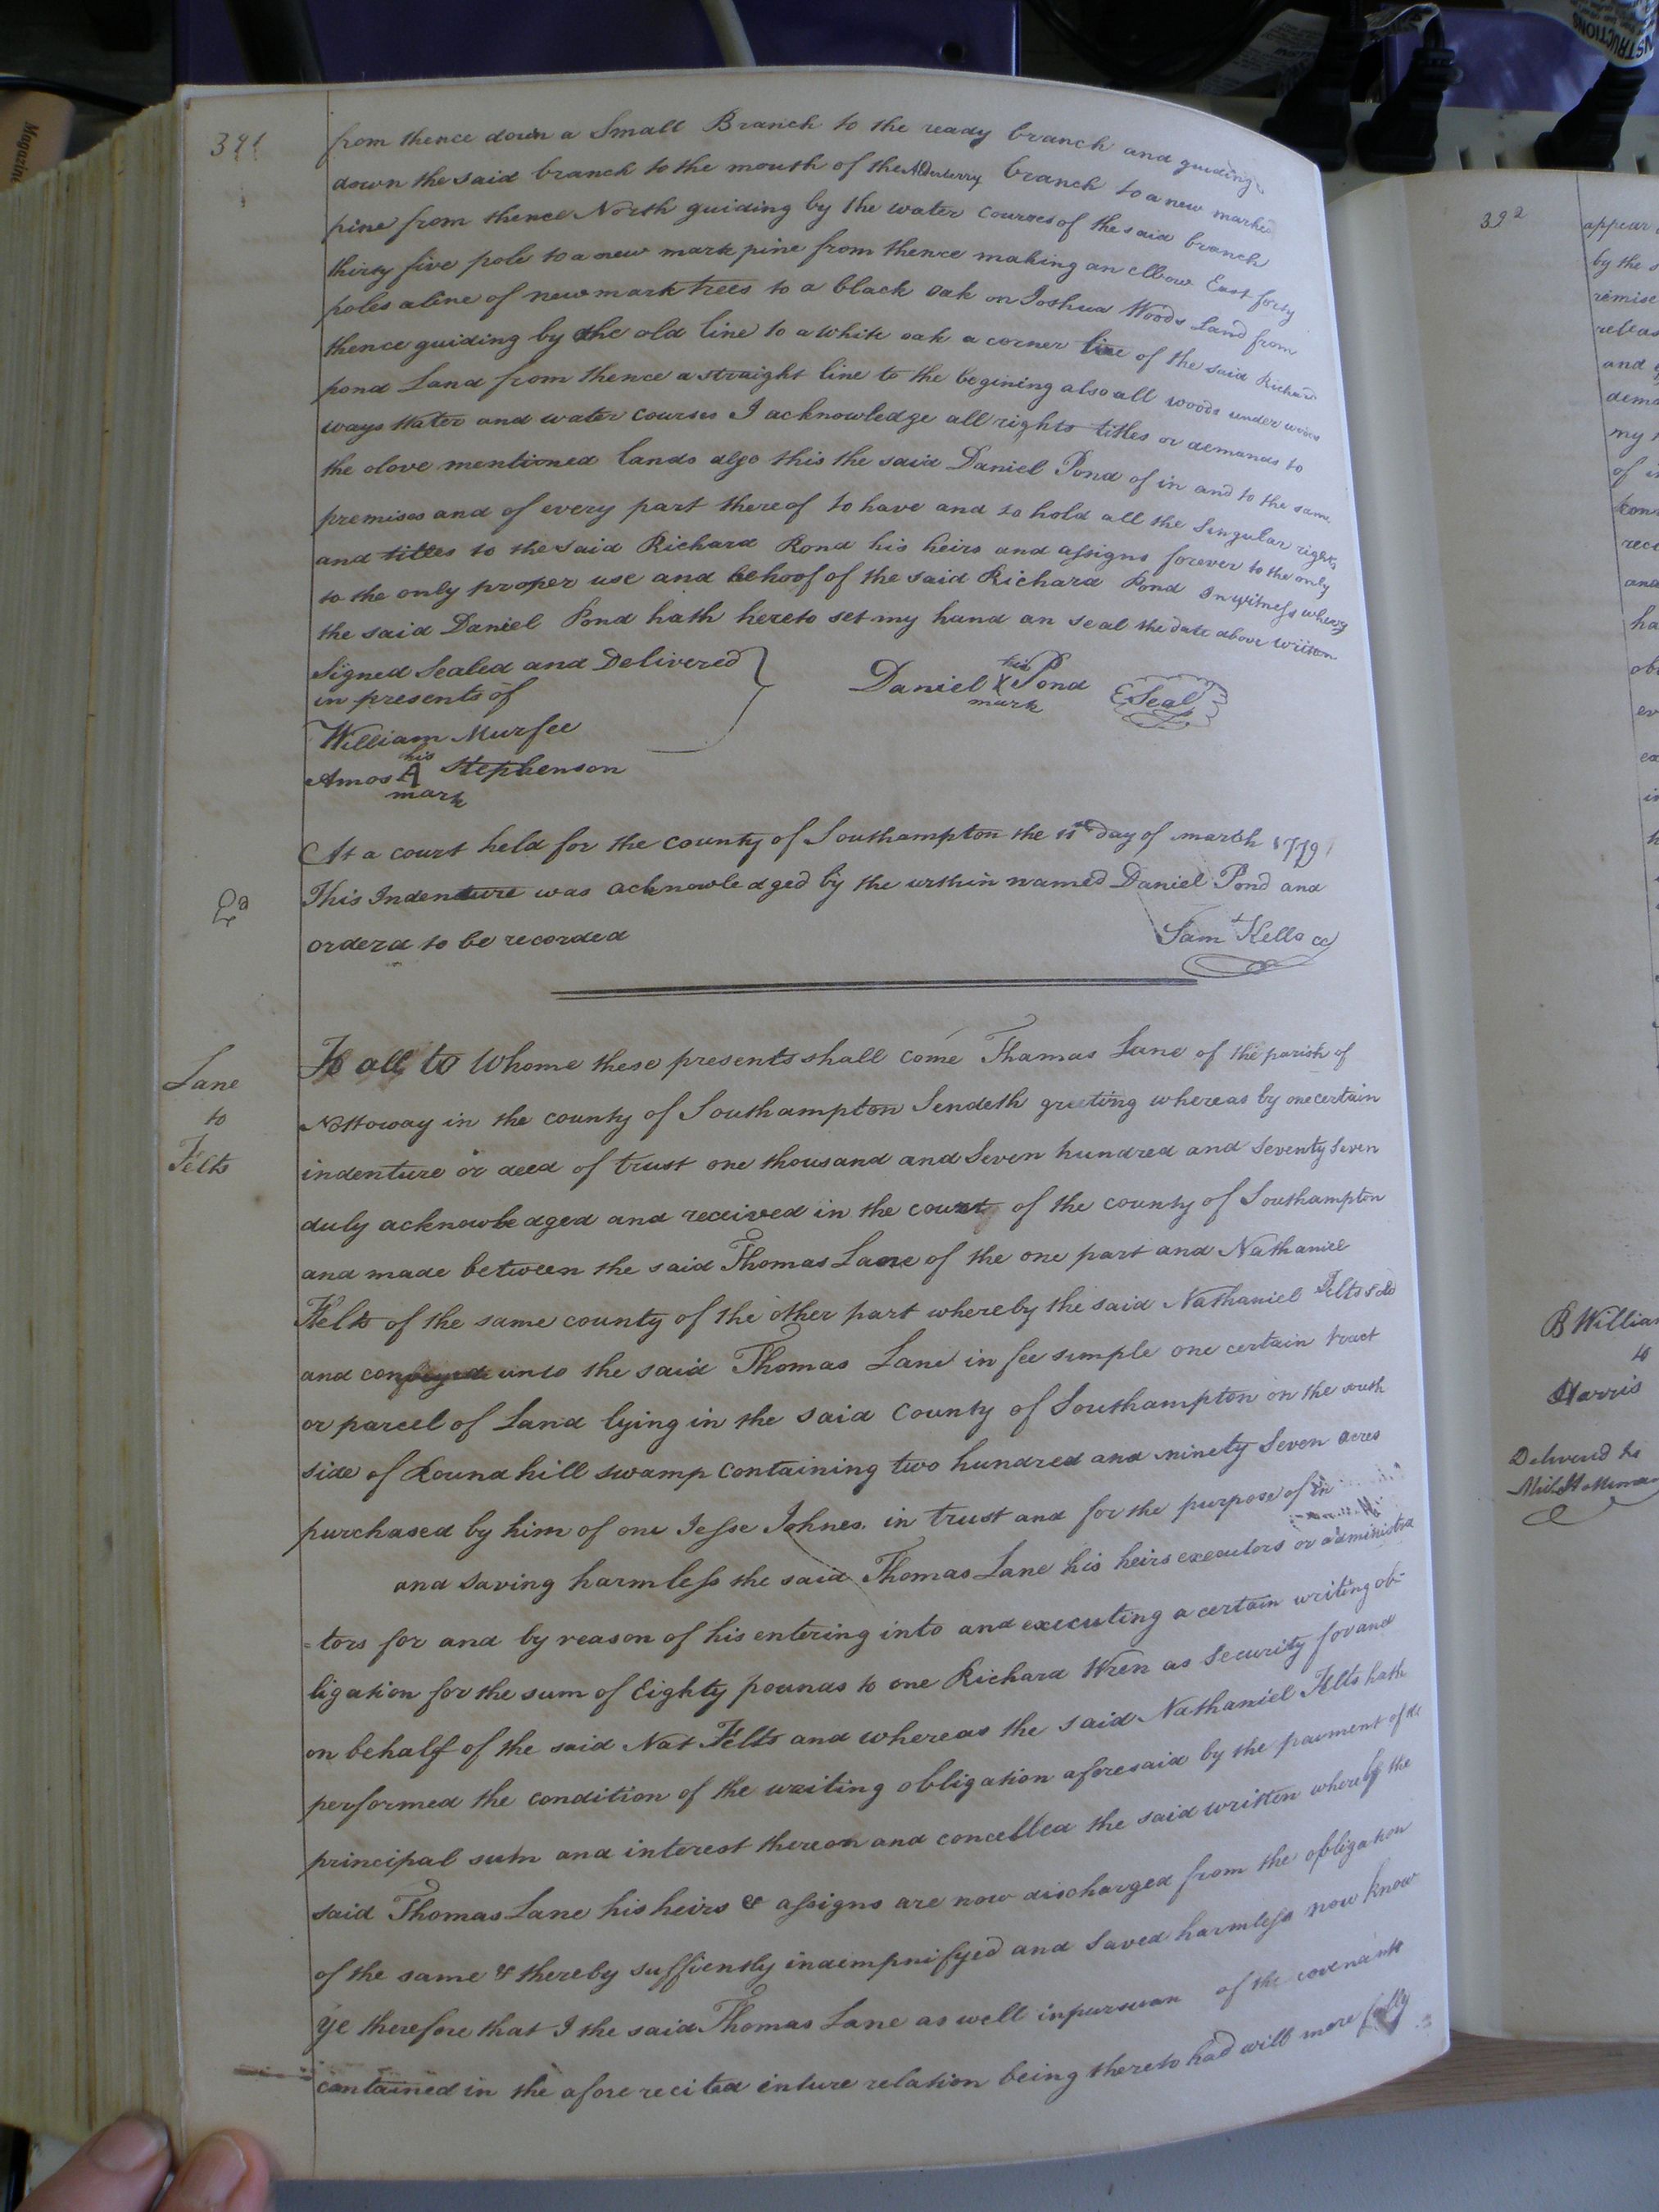 391
from thence down a Small Branch to the ready branch and guiding
down the said branch to the mouth of the branch to a new marked
pine from thence North guiding by the water courses of the said branch
thirty five pole to a new mark pine from thence making an elbow East forty
poles a line of new mark trees to a black oak on Joshua Woods Land from
thence guiding by the old line to a white oak a corner line of the said Richard
pond Land from thence a straight line to the begining also all woods under woods
ways Water and water courses I acknowledge all rights titles or demands to
the above mentioned lands also this the said Daniel Pond of in and to the same
premises and of every part thereof to have and to hold all the Singular rights
and titles to the said Richard Pond his heirs and assigns forever to the only
to the only proper use and behoof of the said Richard Pond In witness whereof
the said Daniel Pond hath hereto set my hand an seal the date above writen
Signed Sealed and Delivered
in presents of
Daniel his X mark Pond Seal
William Murfee
Amos his A mark Stephenson
At a court held for the county of Southampton the 11th day of march 1779
This Indenture was acknowledged by the within named Daniel Pond and
orderd to be recorded
Samt Kello cc
Lane
to
Felts
To all to Whome these presents shall come Thamas Lane of the parish of
Nottoway in the county of Southampton Sendeth greeting whereas by one certain
indenture or deed of trust one thousand and Seven hundred and Seventy Seven
duly acknowledged and received in the court of the county of Southampton
and made between the said Thomas Lane of the one part and Nathaniel
Felts of the same county of the other part whereby the said Nathaniel Felts
and conveyed unto the said Thomas Lane in fee simple one certain tract
or parcel of Land lying in the said County of Southampton on the south
side of Round hill swamp Containing two hundred and ninety Seven acres
purchased by him of one Jesse Johnes in trust and for the purpose of
and Saving harmless the said Thomas Lane his heirs executors or administra
=tors for and by reason of his entering into and executing a certain writing ob-
ligation for the sum of Eighty pounds to one Richard Wren as Security for and
on behalf of the said Nat Felts and whereas the said Nathaniel Felts hath
performed the condition of the writing obligation aforesaid by the paiment of the
principal sum and interest thereon and concelled the said written whereby the
said Thomas Lane his heirs & assigns are now discharged from the obligation
of the same & thereby suffiently indempnifyed and Saved harmless now know
ye therefore that I the said Thomas Lane as well in pursuan of the covenants
contained in the afore recited enture relation being thereto had will more fully
392
appear
by the
remise
releas
and
dema
my
of
rece
and
ha
B William
to
Harris
Delivered to